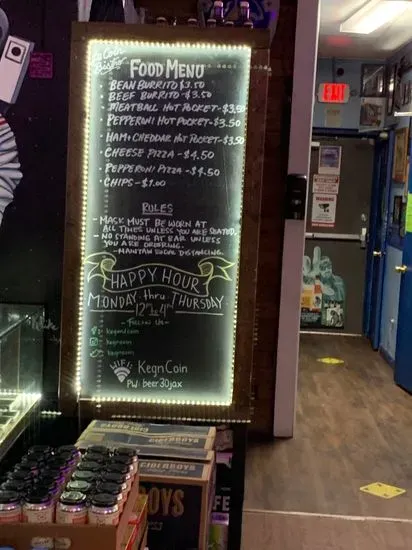 Coin
Bistro
FOOD MENU
• BEAN BURRITO $3.50
• BEEF BURRITO - $3.50
• MEATBALL HOT POCKET - $3.50
• PEPPERONI HOT POCKET - $3.50
• HAM & CHEDDAR HOT POCKET - $3.50
• CHEESE PIZZA - $4.50
• PEPPERONI PIZZA - $4.50
• CHIPS - $1.00
RULES
- MASK MUST BE WORN AT
ALL TIMES UNLESS YOU ARE SEATED.
- NO STANDING AT BAR UNLESS
YOU ARE ORDERING.
- MANTAIN SOCIAL DISTANCING.
HAPPY HOUR
MONDAY thru THURSDAY
- FOLLOW US -
kegncoin
kegncoin
WIFI
KegnCoin
PW: beer30jax
EXIT
CIDERBOYS